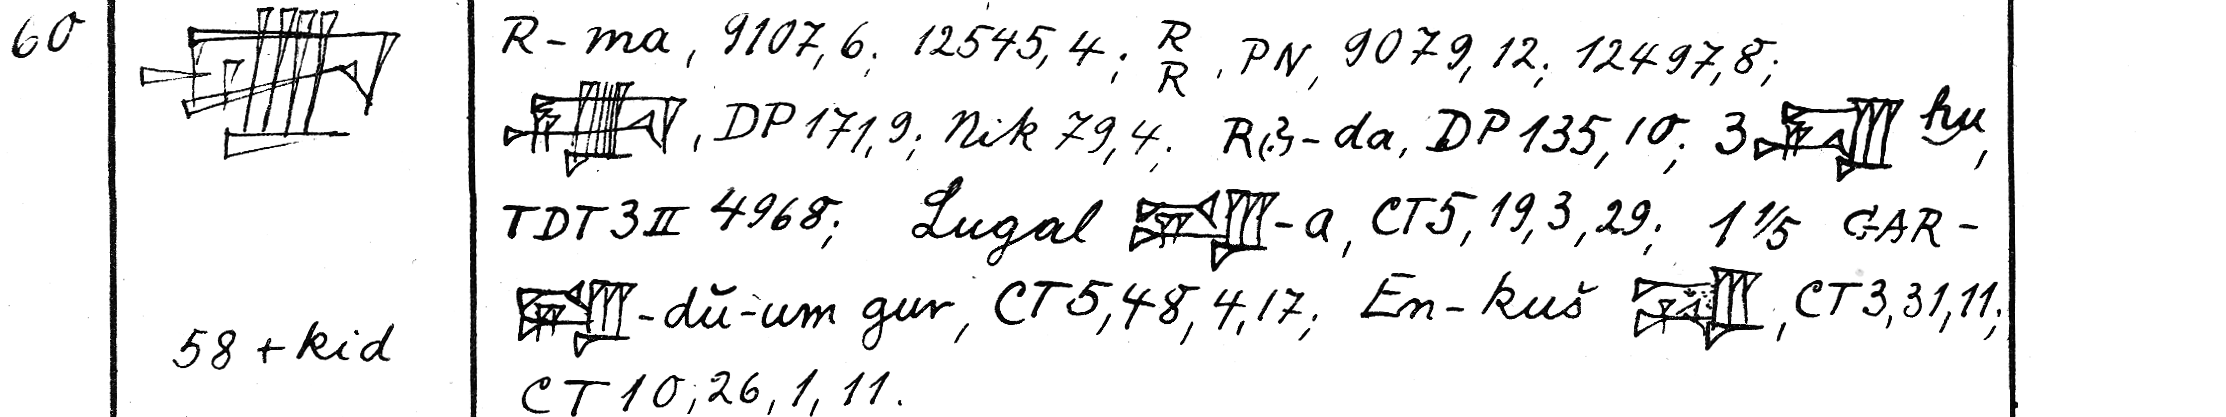 60
R-ma, 9107,6; 12545,4; R R, PN, 9079,12; 12497,8;
, DP 171,9; Nik 79,4; R(?)-da, DP 135,10; 3 ḫu,
TDT 3 II 4968; Lugal -a, CT 5,19,3,29; 1 1/5 GAR-
-dŭ-um gur, CT 5,48,4,17; En-kuš , CT 3,31,11;
58 + kid
CT 10,26,1,11.